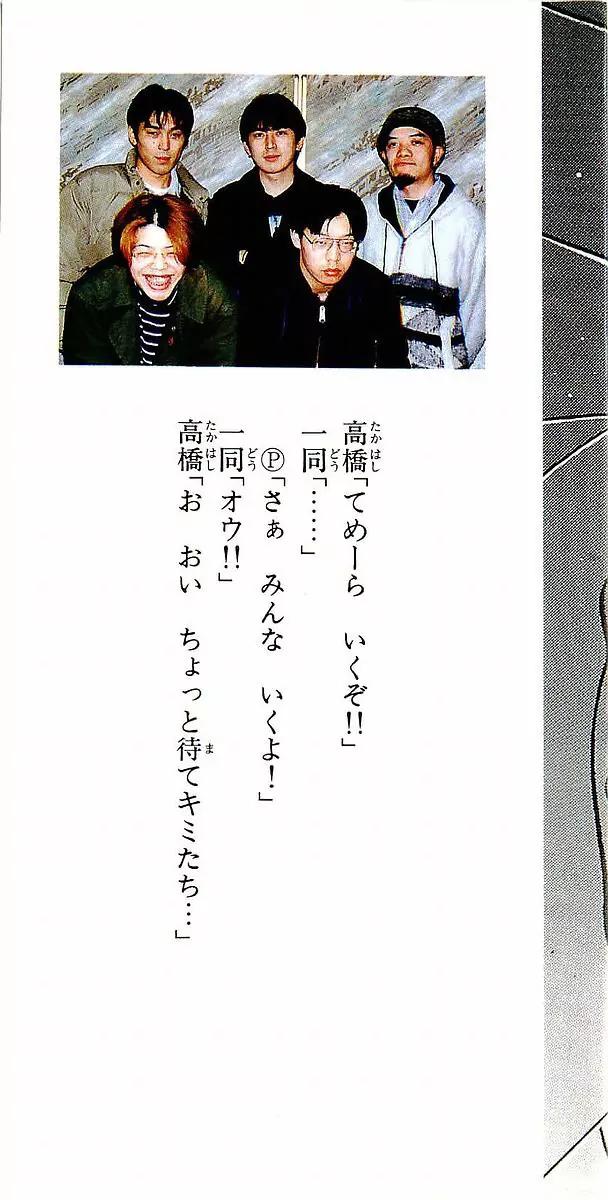 高橋「てめーら　いくぞ!!」
一同「……」
Ⓟ「さぁ　みんな　いくよ！」
一同「オウ!!」
高橋「お　おい　ちょっと待てキミたち…」